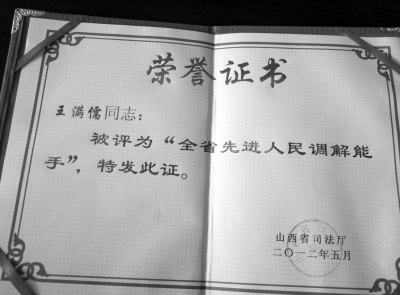 荣誉证书
王满儒同志：
被评为“全省先进人民调解能
手”，特发此证。
山西省司法厅
二〇一二年五月